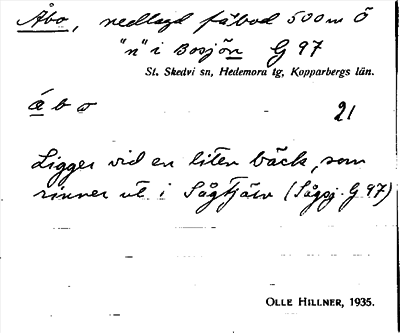 Åbo, nedlagd fäbod 500 m Ö
"n" i Bosjön G 97
St. Skedvi sn, Hedemora tg, Kopparbergs län.
å b o 21
Ligger vid en liten bäck, som
rinner ut i Sågtjärn (Sågsj. G 97)
OLLE HILLNER, 1935.